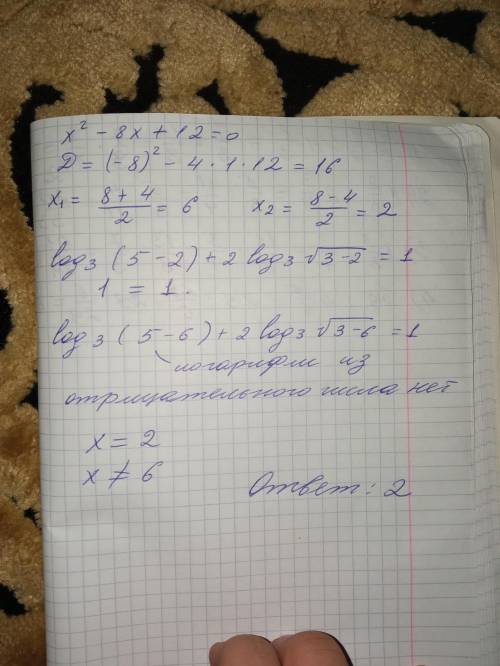 x² - 8x + 12 = 0
D = (-8)² - 4 · 1 · 12 = 16
x₁ = (8 + 4)/2 = 6    x₂ = (8 - 4)/2 = 2
log₃ (5 - 2) + 2 log₃ √(3 - 2) = 1
1 = 1.
log₃ (5 - 6) + 2 log₃ √(3 - 6) = 1
логарифм из
отрицательного числа нет
x = 2
x ≠ 6
Ответ: 2